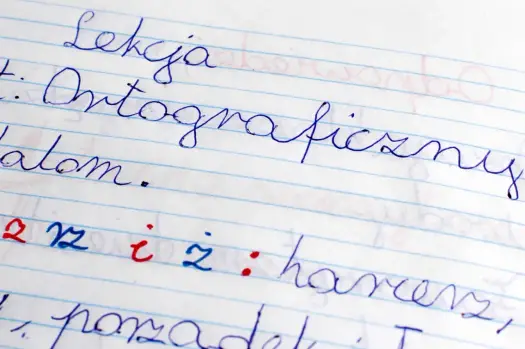 Lekcja
t: Ortograficzny
alom.
z rz i ż : harcerz,
porządek i T